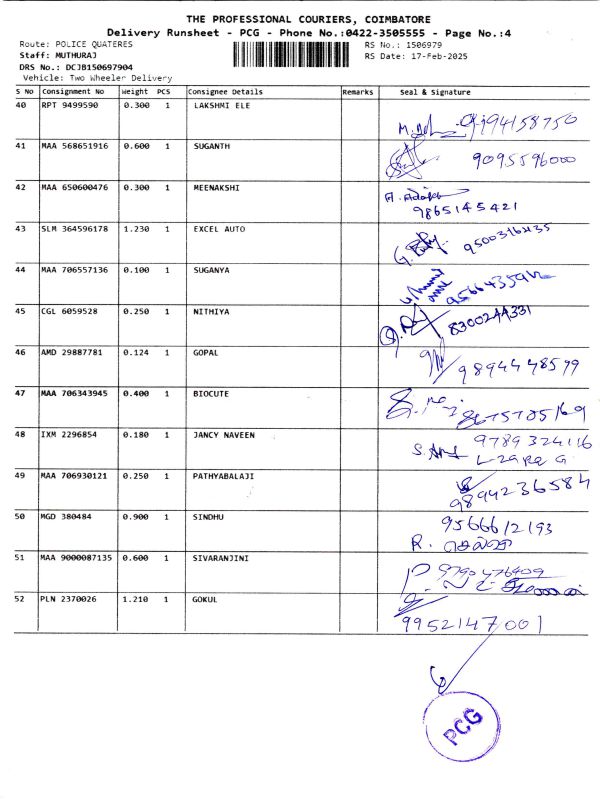 THE PROFESSIONAL COURIERS, COIMBATORE
Delivery Runsheet - PCG - Phone No.:0422-3505555 - Page No.:4
Route: POLICE QUATERES RS No.: 1506979
Staff: MUTHURAJ RS Date: 17-Feb-2025
DRS No.: DCJB150697904
Vehicle: Two Wheeler Delivery
S No Consignment No Weight PCS Consignee Details Remarks Seal & Signature
40 RPT 9499590 0.300 1 LAKSHMI ELE
41 MAA 568651916 0.600 1 SUGANTH 9095596000
42 MAA 650600476 0.300 1 MEENAKSHI
9865145421
43 SLM 364596178 1.230 1 EXCEL AUTO
44 MAA 706557136 0.100 1 SUGANYA
45 CGL 6059528 0.250 1 NITHIYA 8300244331
46 AMD 29887781 0.124 1 GOPAL 9894448599
47 MAA 706343945 0.400 1 BIOCUTE 8675705169
48 IXM 2296854 0.180 1 JANCY NAVEEN 9789324116
49 MAA 706930121 0.250 1 PATHYABALAJI 9894236584
50 MGD 380484 0.900 1 SINDHU 9566612193
51 MAA 9000087135 0.600 1 SIVARANJINI 9790476409
52 PLN 2370026 1.210 1 GOKUL
9952147001
PCG